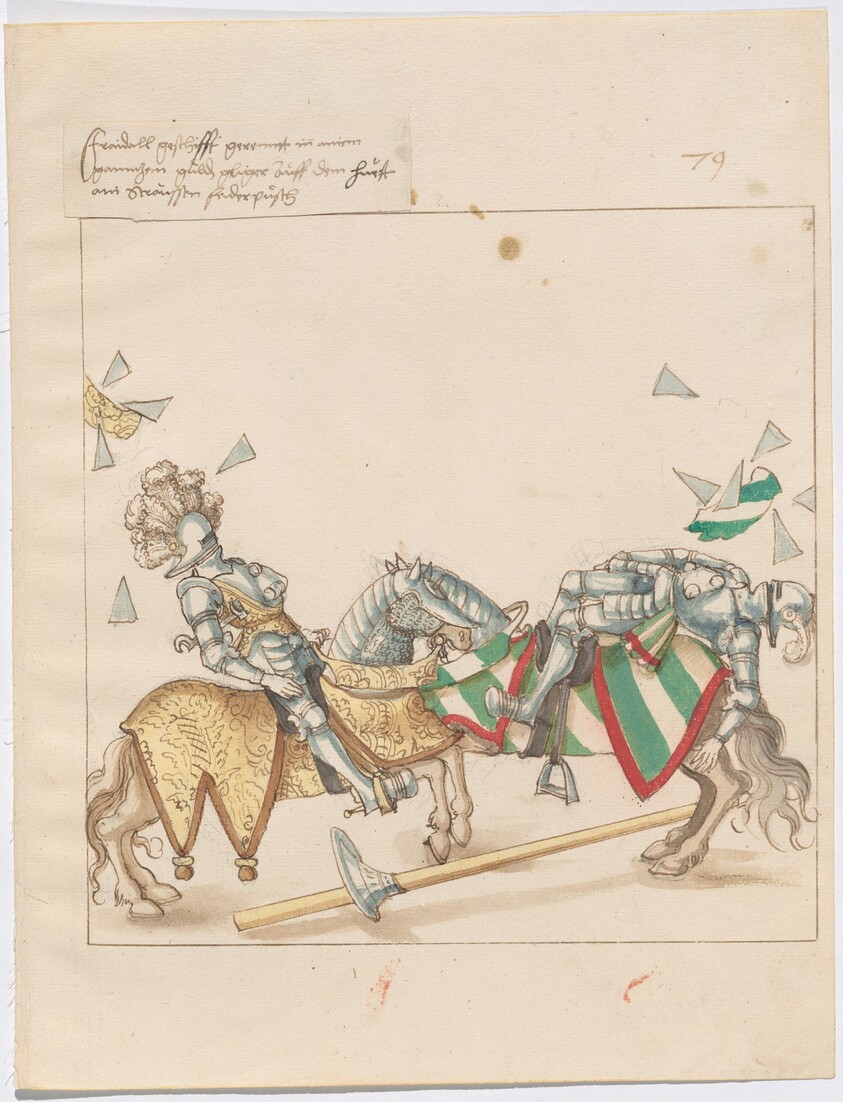 Fraidall geschifft gerennet in ainem
ganntzem guldin auff dem huet
ain Straussen federpusch
79